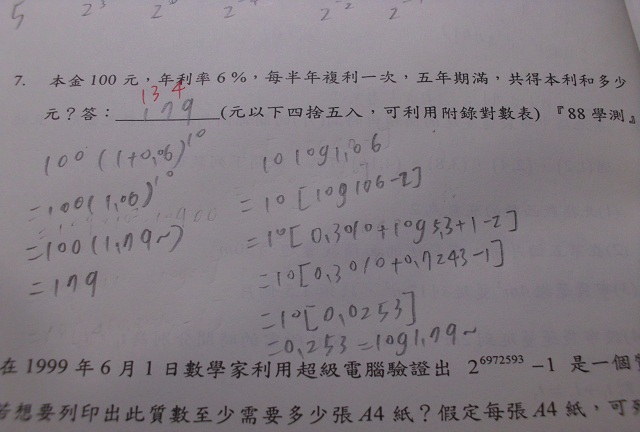 5 2³ 2⁻² 2⁻¹
7. 本金100元，年利率6%，每半年複利一次，五年期滿，共得本利和多少
134
元？答：179(元以下四捨五入，可利用附錄對數表)『88學測』
100(1+0.06)¹⁰
=100(1.06)¹⁰
=100(1.79~)
=179
10log1.06
=10[log106-2]
=10[0.3010+log5.3+1-2]
=10[0.3010+0.7243-1]
=10[0.0253]
=0.253=log1.79~
在1999年6月1日數學家利用超級電腦驗證出 2⁶⁹⁷²⁵⁹³-1 是一個質
若想要列印出此質數至少需要多少張A4紙？假定每張A4紙，可